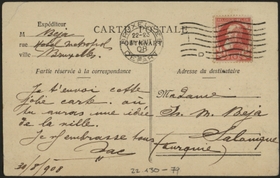 Expéditeur
CARTE POSTALE
M Beja
rue Hotel Metropol
ville Bruxelles
Partie réservée à la correspondance
Adresse du destinataire
Je t'envoi cette
jolie carte. où
tu auras une idée
de la ville.
Je t'embrasse tous
Jac
30/5/908
Madame
M. Beja
Salonique
(Turquie)
25 130-79